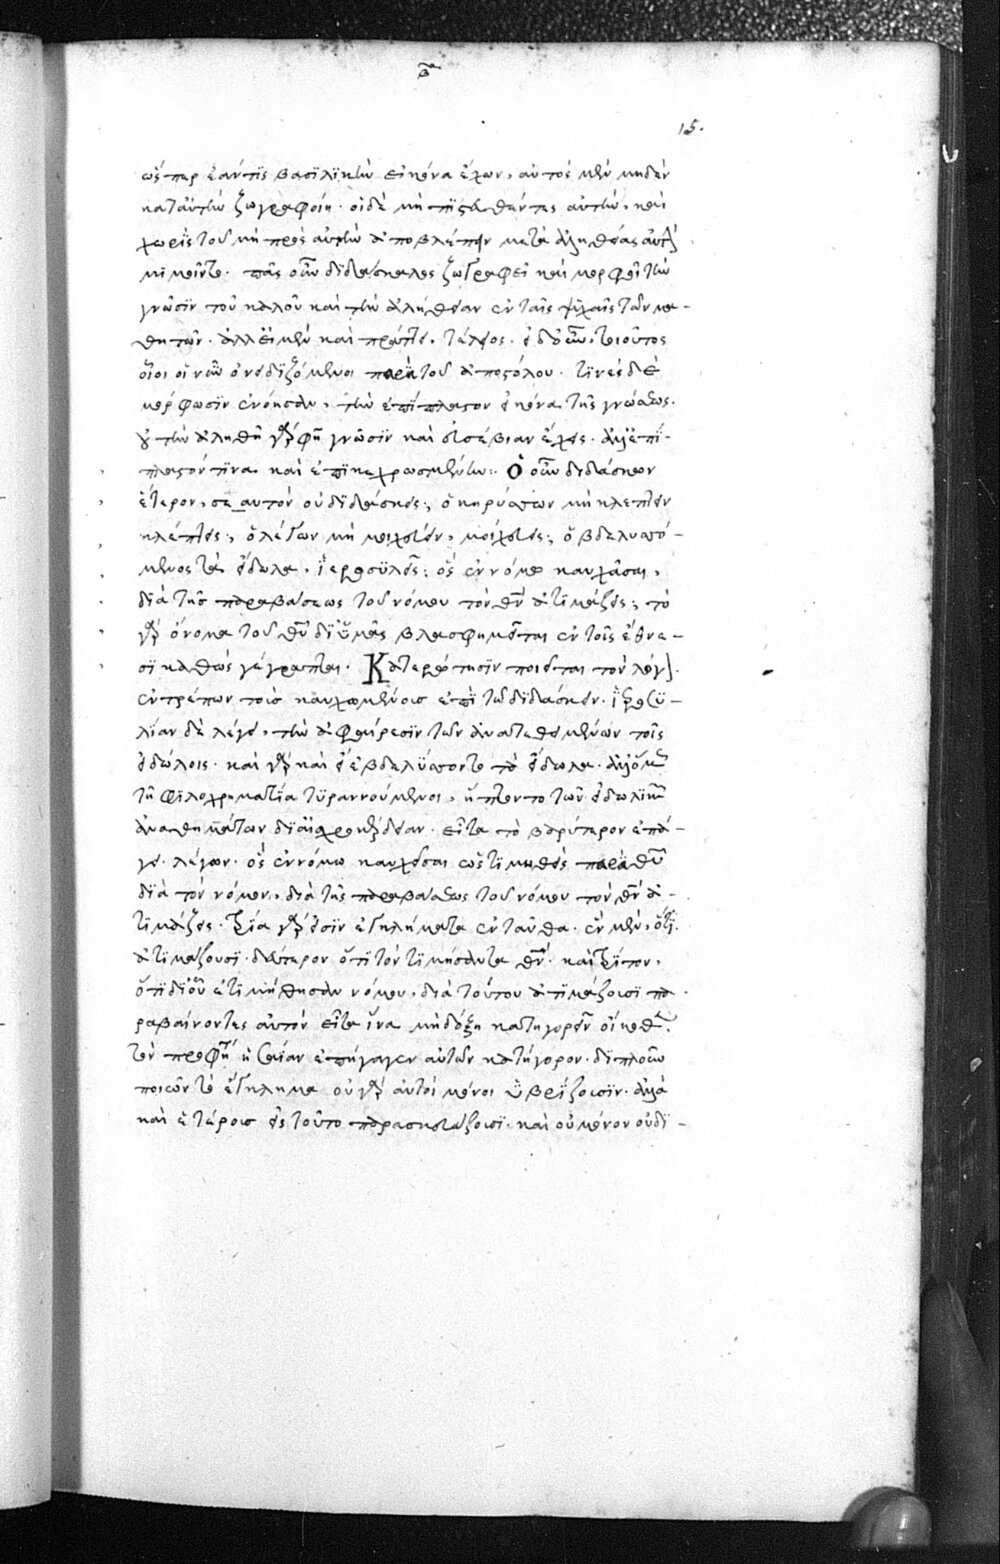 β
15.
ὥσπερ ἐάν τις βασιλϊκὴν εἰκόνα ἔχων, αὐτὸς μὲν μηδὲν
κατ αὐτὴν ζωγραφοίη. οἱ δὲ μὴ πϊστευθέντες αὐτὴν, καὶ
χωρὶς τοῦ μὴ πρὸς αὐτὴν ἀποβλέπειν μετὰ ἀληθείας αὐτὴν
μιμοῖντο. πᾶς οὖν διδάσκαλος ζωγραφεῖ καὶ μορφοῖ τὴν
γνῶσϊν τοῦ καλοῦ καὶ τὴν ἀλήθειαν ἐν ταῖς ψϋχαῖς τῶν μα-
θητῶν. ἀλλ εἰ μὲν καὶ πράττει, τέλειος. εἰ δ οὖν, τοιοῦτος
οἷοι οἱ νῦν ὀνειδιζόμενοι παρὰ τοῦ ἀποστόλου. τϊνὲς δὲ
μόρφωσϊν ἐνόησαν, τὴν ἐπίπλαστον εἰκόνα τῆς γνώσεως.
οὐ τὴν ἀληθῆ γάρ φη γνῶσϊν καὶ εὐσέβιαν ἔχεις. ἀλλ ἐπί-
πλαστόν τϊνα καὶ ἐπϊκεχρωσμένην: Ὁ οὖν διδάσκων
ἕτερον, σεαυτὸν οὐ διδάσκεις; ὁ κηρύσσων μὴ κλέπτειν
κλέπτεις; ὁ λέγων μὴ μοιχεύειν, μοιχεύεις; ὁ βδελυσσό-
μενος τὰ εἴδωλα, ἱεροσυλεῖς; ὃς ἐν νόμω καυχᾶσαι,
διὰ τῆς παραβάσεως τοῦ νόμου τὸν θν ἀτιμάζεις; τὸ
γὰρ ὄνομα τοῦ θυ δι ὑμᾶς βλασφημεῖται ἐν τοῖς ἔθνε-
σϊ καθὼς γέγραπται. Κατερώτησϊν ποιεῖται τὸν λόγον
ἐντρέπων τοὺς καυχωμένους ἐπὶ τῶ διδάσκειν. ἱεροσϋ-
λίαν δὲ λέγει, τὴν ἀφαίρεσϊν τῶν ἀνατεθειμένων τοῖς
εἰδώλοις. καὶ γὰρ καὶ εἰ ἐβδελύσσοντο τὰ εἴδωλα. ἀλλ ὅμως
τῆ φϊλοχρηματία τϋραννούμενοι, ἥπτοντο τῶν εἰδωλικῶν
ἀναθημάτων δι αἰσχροκέρδειαν. εἶτα τὸ βαρύτερον ἐπά-
γει λέγων. ὃς ἐν νόμω καυχᾶσαι ὡς τιμηθεὶς παρὰ θυ
διὰ τὸν νόμον, διὰ τῆς παραβάσεως τοῦ νόμου τὸν θν ἀ-
τιμάζεις. τρία γάρ εἰσϊν ἐγκλήματα ἐνταῦθα. ἓν μὲν, ὅτι
ἀτιμάζουσϊ. δεύτερον ὅτι τὸν τιμήσαντα θν. καὶ τρίτον,
ὅτι δι οὗ ἐτιμήθησαν νόμου, διὰ τούτου ἀτιμάζουσϊ πα
ραβαίνοντες αὐτόν. εἶτα ἵνα μὴ δόξη κατηγορεῖν οἴκοθεν
τὸν προφήτην ἡσαΐαν ἐπήγαγεν αὐτῶν κατήγορον. διπλοῦν
ποιῶν τὸ ἔγκλημα οὐ γὰρ αὐτοὶ μόνοι ὑβρίζουσϊν. ἀλλὰ
καὶ ἑτέρους εἰς τοῦτο παρασκευάζουσϊ. καὶ οὐ μόνον οὐ δϊ-